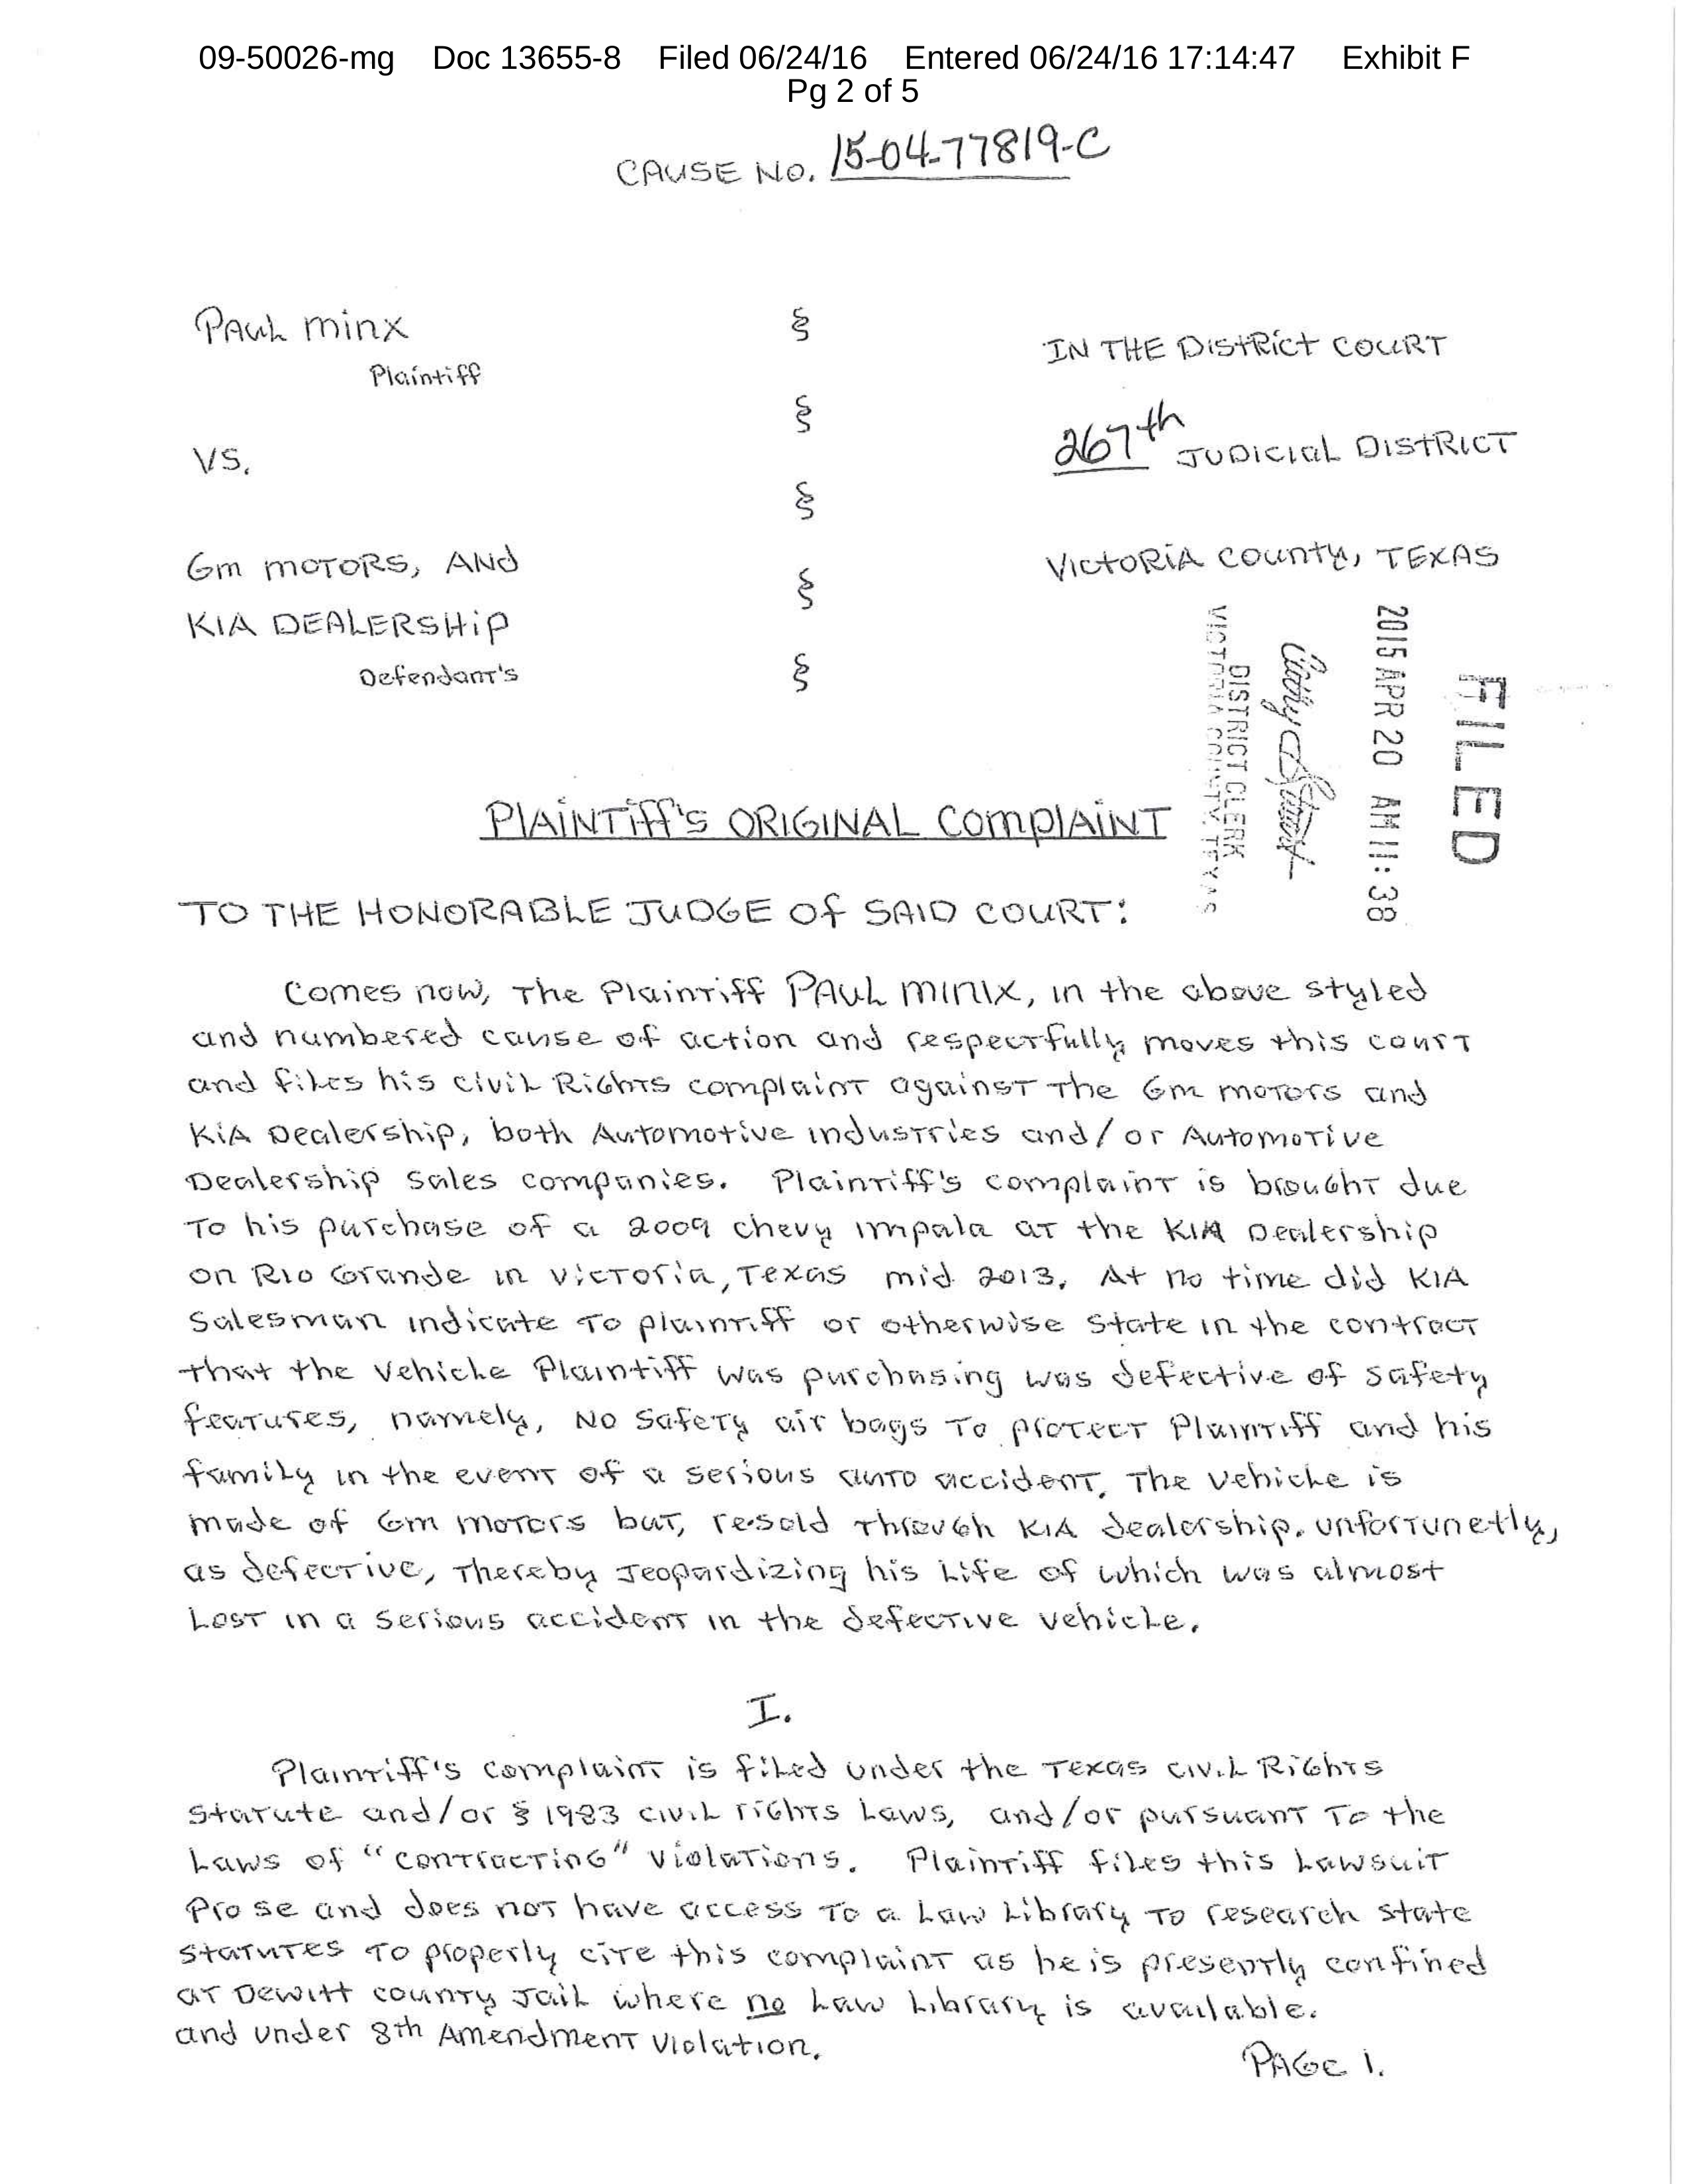 09-50026-mg Doc 13655-8 Filed 06/24/16 Entered 06/24/16 17:14:47 Exhibit F
Pg 2 of 5
CAUSE NO. 15-04-77819-C
PAUL minx § IN THE DISTRICT COURT
Plaintiff
§ 267th JUDICIAL DISTRICT
VS.
§
Gm MOTORS, AND § VICTORIA COUNTY, TEXAS
KIA DEALERSHIP
Defendant's §
FILED
2015 APR 20 AM 11:38
DISTRICT CLERK
VICTORIA COUNTY, TEXAS
PLAINTIFF'S ORIGINAL COMPLAINT
TO THE HONORABLE JUDGE OF SAID COURT:
Comes now, The Plaintiff PAUL MINIX, in the above styled
and numbered cause of action and respectfully moves this court
and files his civil Rights complaint against The Gm motors and
KIA Dealership, both Automotive industries and/or Automotive
Dealership sales companies. Plaintiff's complaint is brought due
To his purchase of a 2009 chevy impala at the KIA Dealership
on Rio Grande in Victoria, Texas mid 2013. At no time did KIA
Salesman indicate To plaintiff or otherwise state in the contract
that the vehicle Plaintiff was purchasing was defective of safety
features, namely, No safety air bags To protect Plaintiff and his
family in the event of a serious auto accident. The vehicle is
made of Gm motors but, re-sold through KIA dealership. unfortunetly,
as defective, thereby Jeopardizing his Life of which was almost
Lost in a serious accident in the defective vehicle.
I.
Plaintiff's complaint is filed under the Texas civil Rights
statute and/or § 1983 civil rights Laws, and/or pursuant To the
Laws of "contracting" violations. Plaintiff files this Lawsuit
Pro se and does not have access To a Law Library To research state
statutes To properly cite this complaint as he is presently confined
at Dewitt county Jail where no Law Library is available.
and under 8th Amendment violation.
PAGE 1.